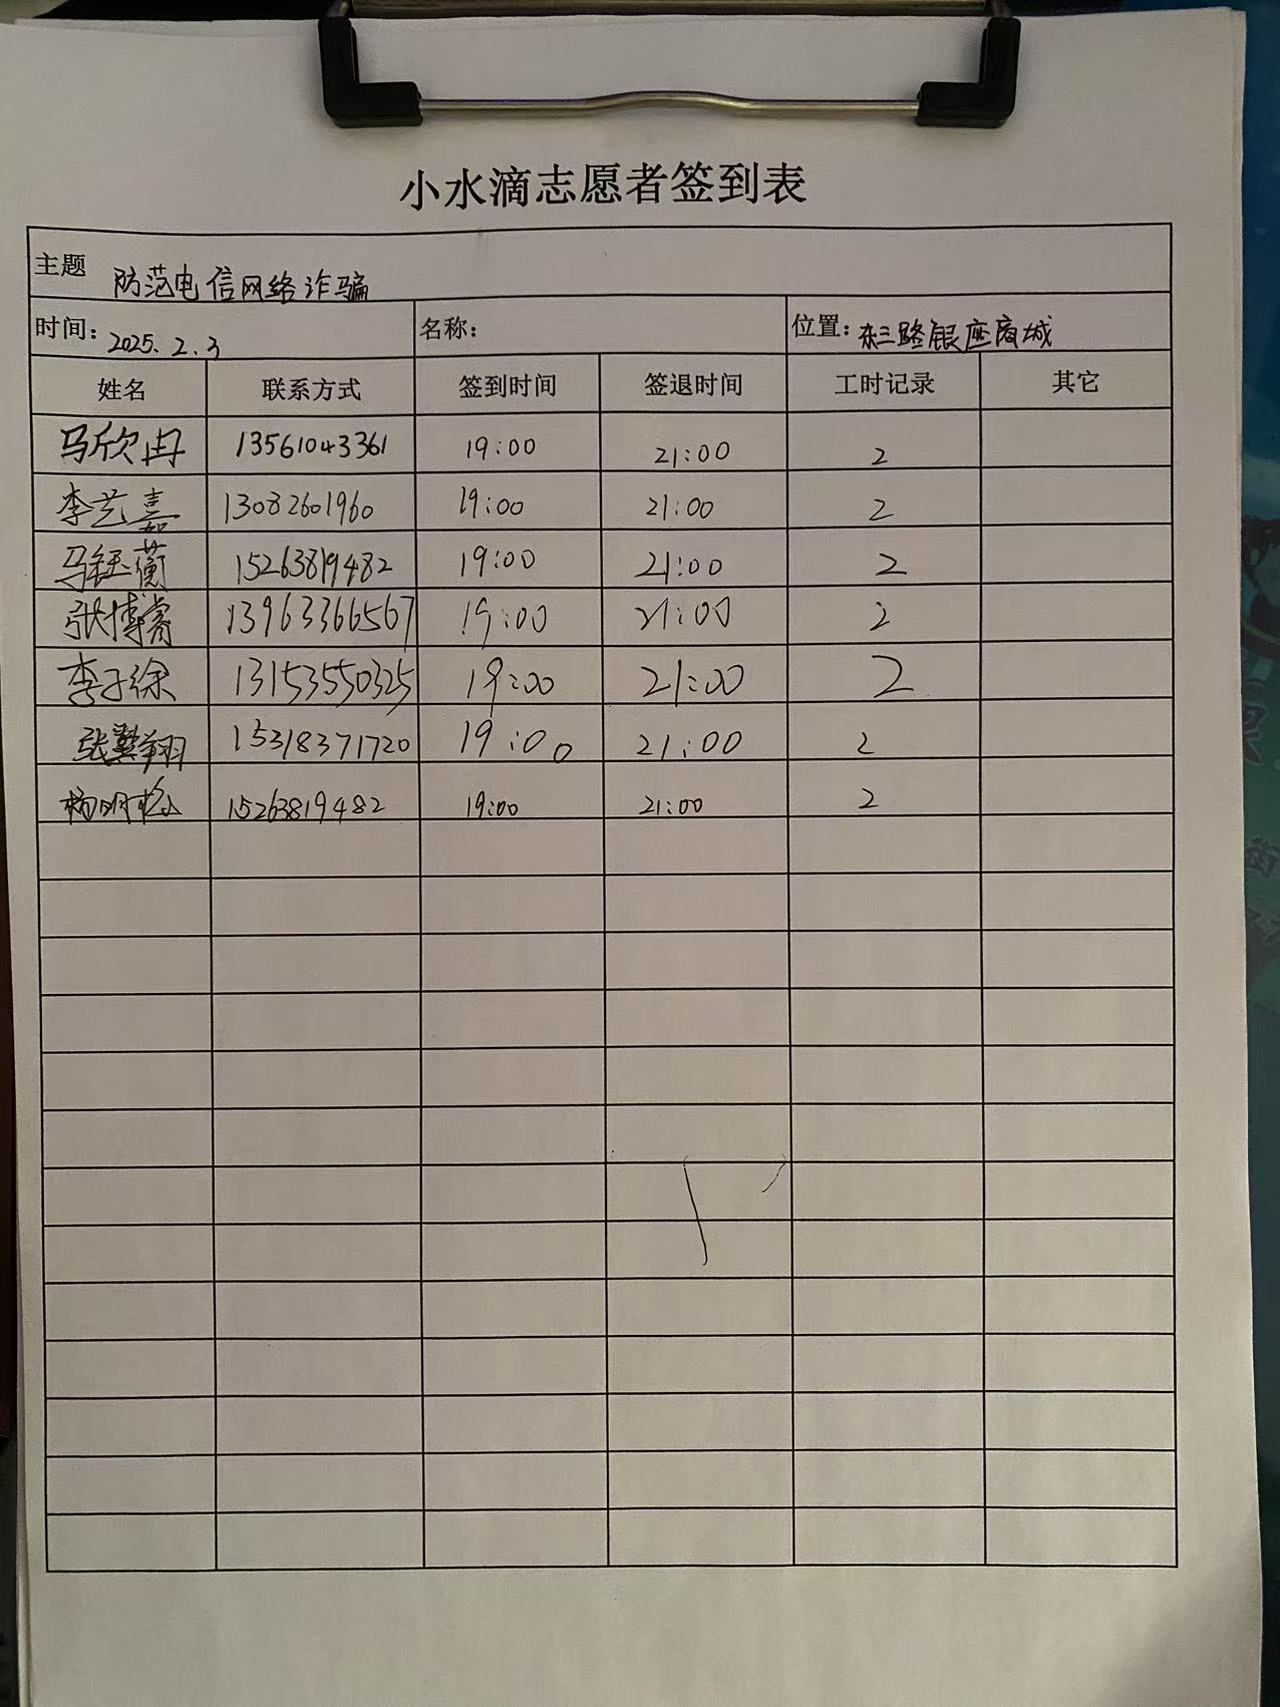 小水滴志愿者签到表
主题 防范电信网络诈骗
时间: 2025.2.3 名称: 位置: 东三路银座商城
姓名 联系方式 签到时间 签退时间 工时记录 其它
马欣冉 13561043361 19:00 21:00 2
李艺嘉 13082601960 19:00 21:00 2
马钰蘅 15263819482 19:00 21:00 2
张博睿 13963366567 19:00 21:00 2
李子徐 13153550325 19:00 21:00 2
张翔 15318371720 19:00 21:00 2
杨明 15263819482 19:00 21:00 2